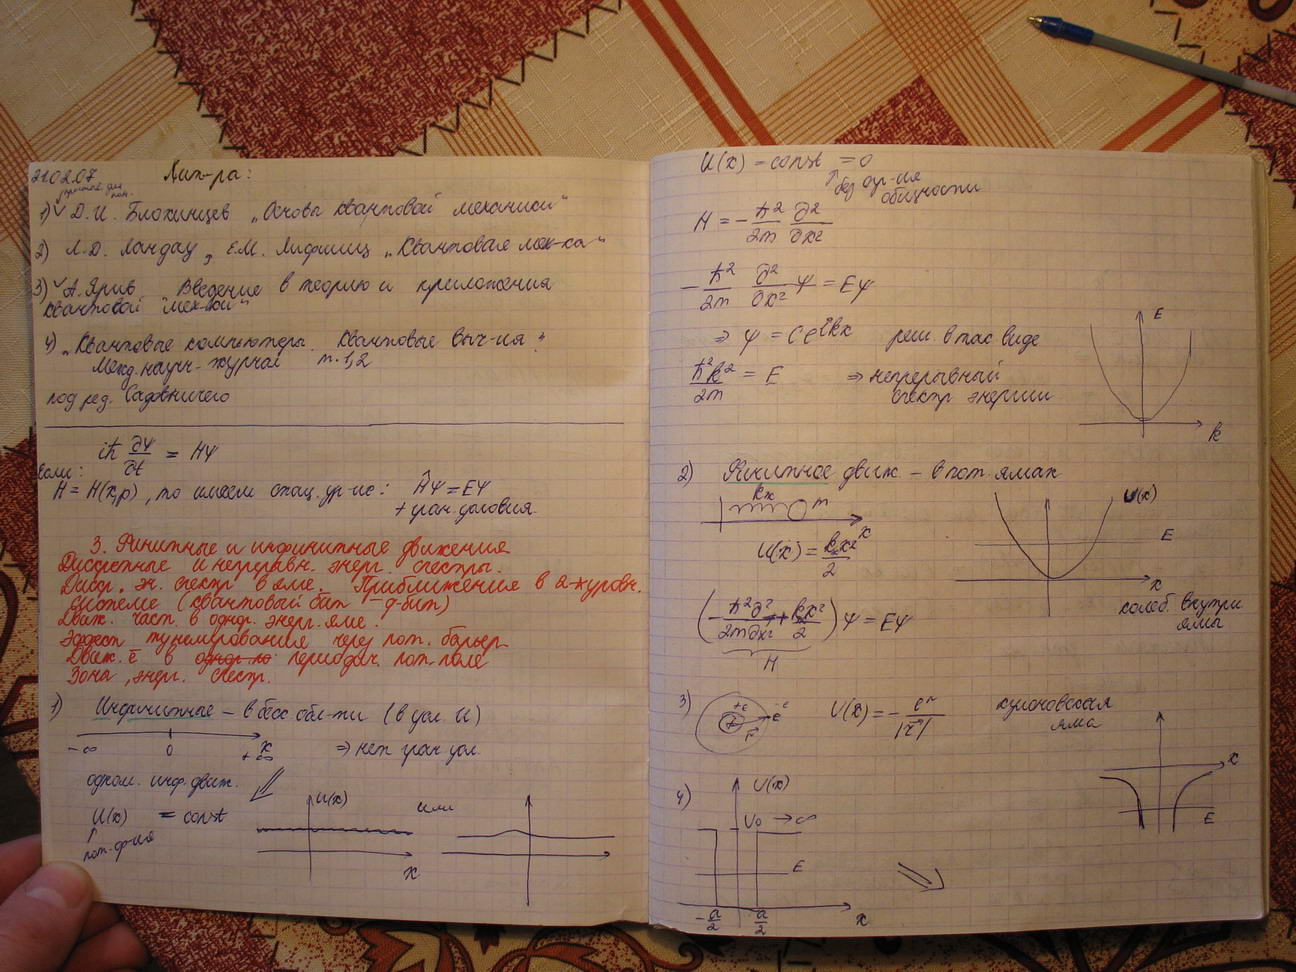 21.02.07 Лит-ра:
1) ✓ Д.И. Блохинцев „Основы квантовой механики"
2) Л.Д. Ландау, Е.М. Лифшиц „Квантовая мех-ка"
3) ✓ А. Ярив Введение в теорию и приложения
квантовой мех-ки"
4) „Квантовые компьютеры. Квантовые выч-ия."
Межд. научн. журнал т. 1,2
под ред. Садовничего
iħ ∂ψ/∂t = Hψ
Если:
H = H(x,p), то имеем стац. ур-ие: Ĥψ = Eψ
+ гран. условия
3. Финитные и инфинитные движения
Дискретные и непрерывн. энерг. спектры.
Дискр. эн. спектр в яме. Приближения в 2-хуровн.
системе (квантовый бит – q-бит)
Движ. част. в одной энерг. яме.
Эффект туннелирования через пот. барьер
Движ. ē в периодич. пот. поле
Зона, энерг. спектр.
1) Инфинитные – в беск. обл-ти (в усл. U)
-∞ 0 +∞ x ⇒ нет гран. усл.
одном. инф. движ.
U(x) = const U(x) или
↑
пот. ф-ия x
U(x) = const = 0
↑ без огр-ия
общности
H = -ħ²/2m ∂²/∂x²
-ħ²/2m ∂²/∂x² ψ = Eψ
E
⇒ ψ = Ce^{ikx} реш. в таком виде
ħ²k²/2m = E ⇒ непрерывный
спектр энергии
k
2) Финитное движ. – в пот. ямах
kx m x U(x)
U(x) = kx²/2 E
x
колеб. внутри
ямы
(-ħ²∂²/2m∂x² + kx²/2) ψ = Eψ
H
3) +e ē r U(x) = -e²/|r| кулоновская
яма
x
E
4) U(x)
U₀ → ∞
E
-a/2 a/2 x